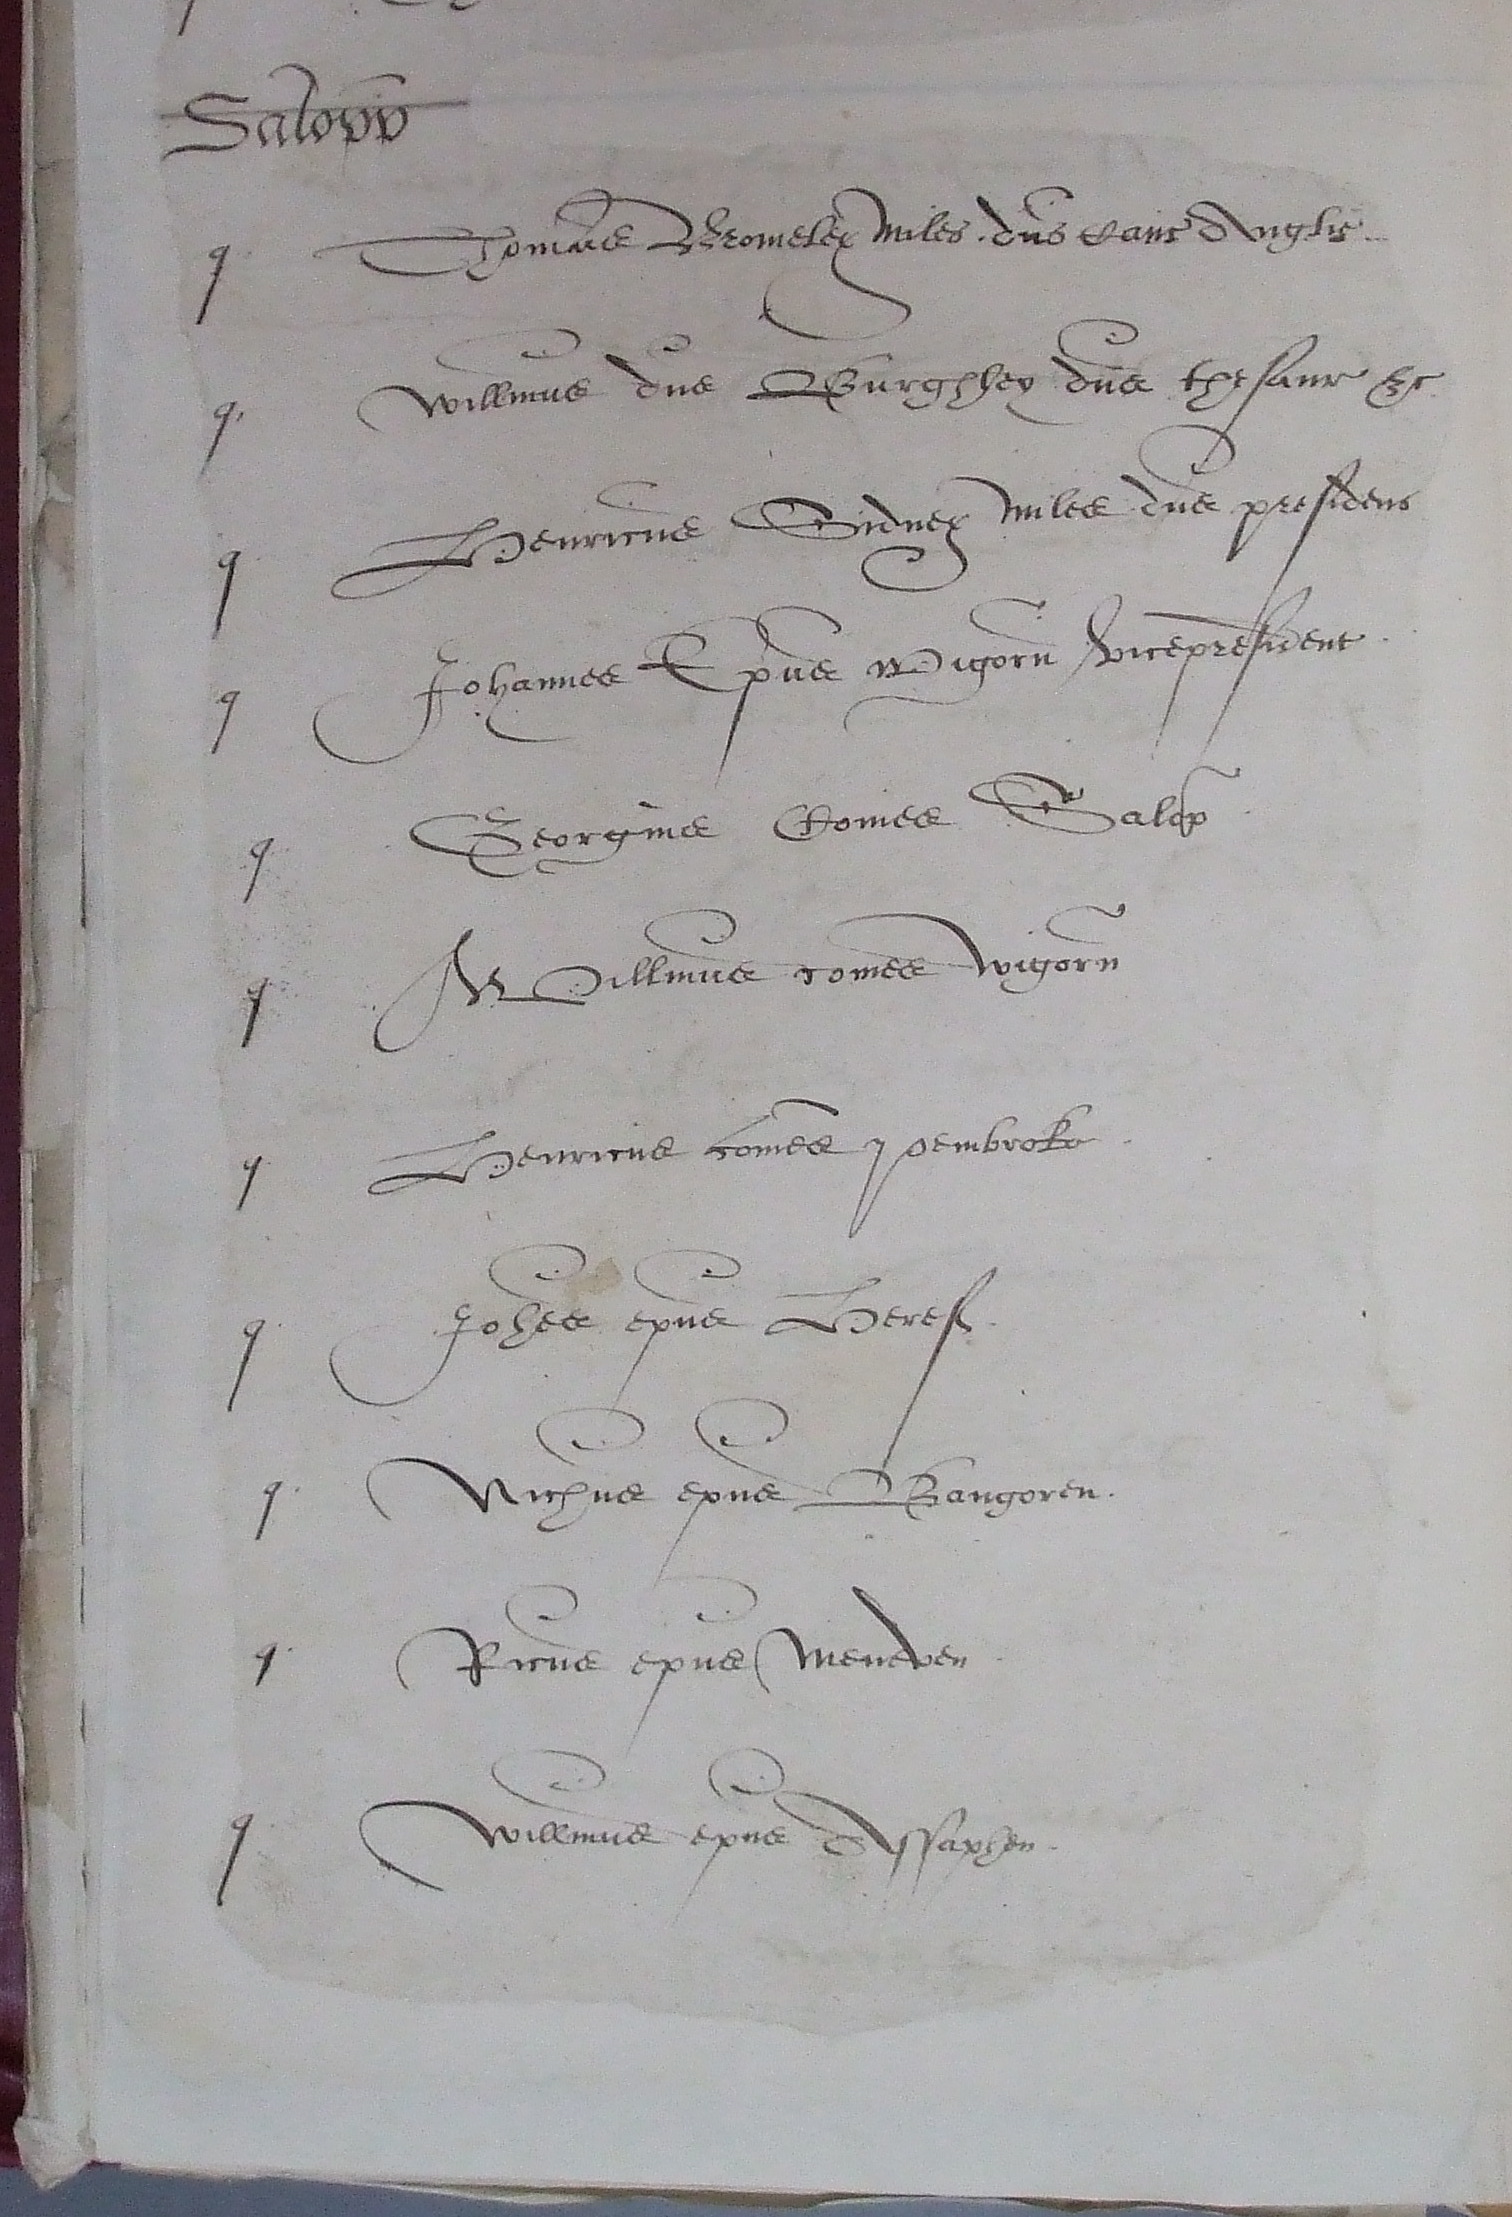 Salopp
q Thomas Bromeley miles dns Canc Anglie
q Willmus dns Burghley dns thesaur &c
q Henricus Sidney miles dns presidens
q Johannes Epus Wigorn vicepresident
q Georgius Comes Salop
q Willmus comes wigorn
q Henricus comes pembroke
q Johes epus Heref
q Nichus epus Bangoren
q Ricus epus Meneven
q Willmus epus Assaphen